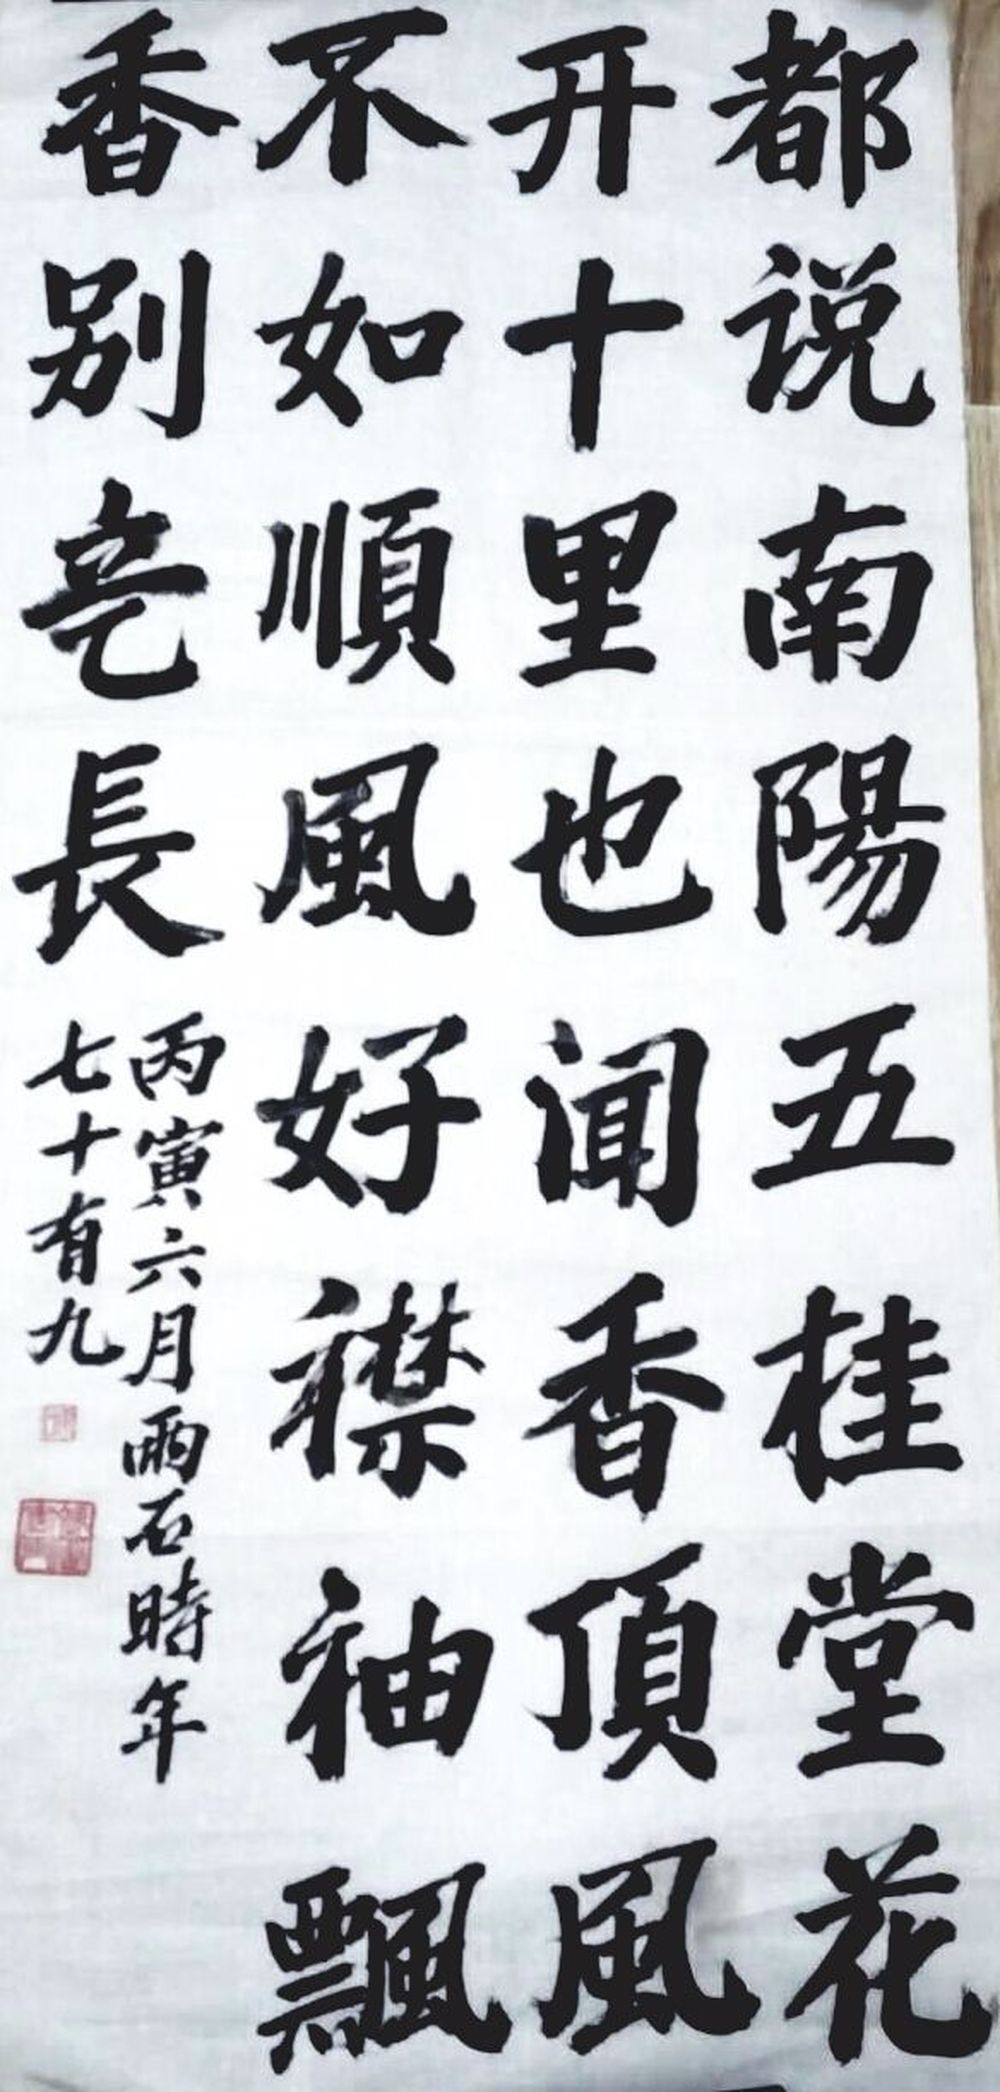 都说南陽五桂堂花
开十里也闻香頂風
不如順風好襟袖飄
香别㐫長
丙寅六月雨石時年
七十有九